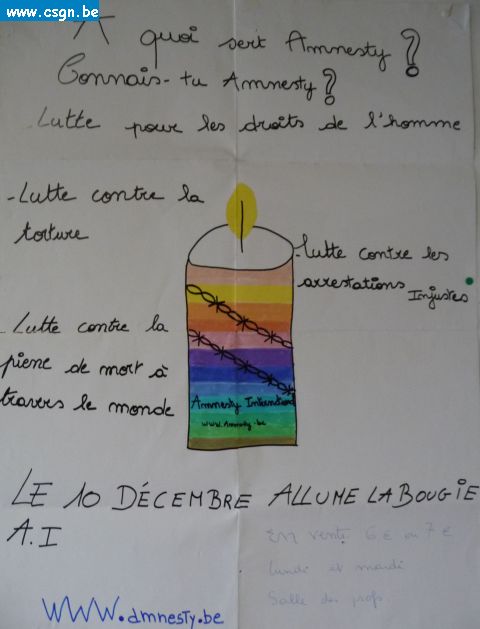 www.csgn.be
A quoi sert Amnesty?
Connais-tu Amnesty?
-Lutte pour les droits de l'homme
-Lutte contre la
torture
-lutte contre les
arrestations Injustes
-Lutte contre la
piene de mort à
travers le monde
Amnesty International
www.Amnesty.be
LE 10 DÉCEMBRE ALLUME LA BOUGIE
A.I
En vente 6€ ou 7€
lundi et mardi
Salle des profs.
WWW.amnesty.be